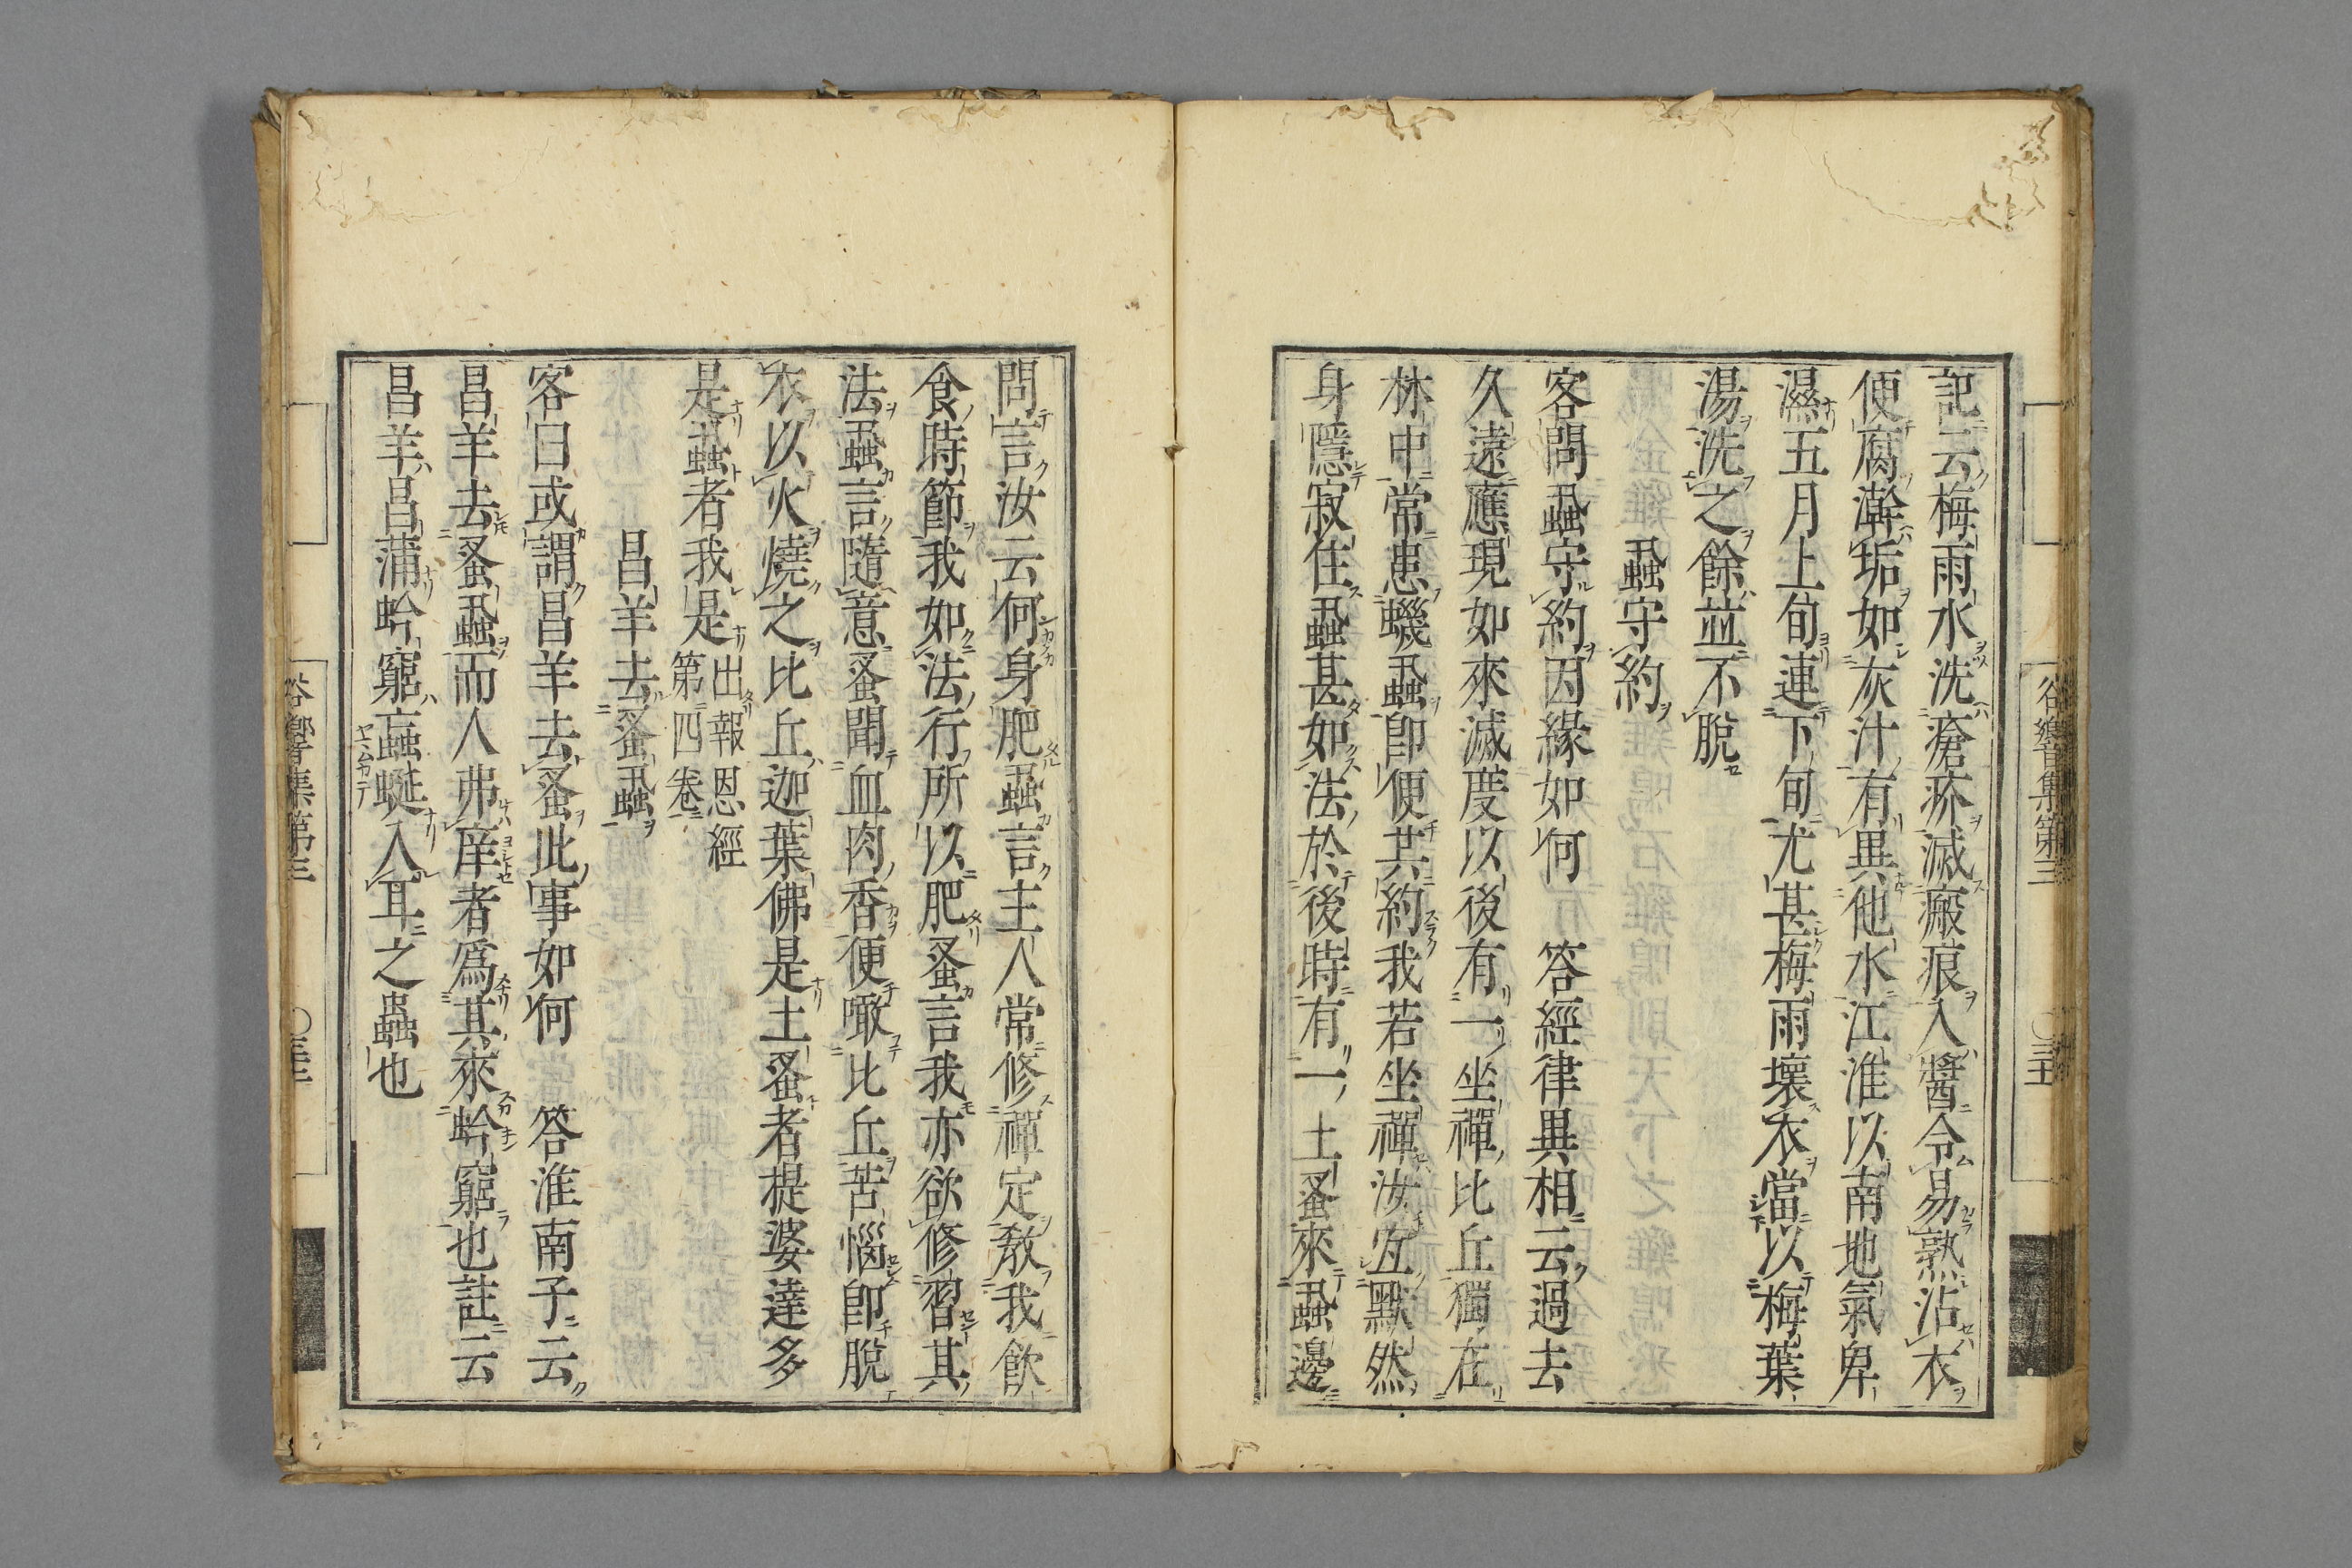 記云梅雨水洗瘡疥滅瘢痕入醬令易熟沾衣
便腐澣垢如灰汁有異他水江淮以南地氣卑
濕五月上旬連下旬尤甚梅雨壞衣當以梅葉
湯洗之餘並不脫
蝨守約
客問蝨守約因緣如何　答經律異相云過去
久遠應現如來滅度以後有一坐禪比丘獨在
林中常患蟣蝨卽便共約我若坐禪汝宜默然
身隱寂住蝨甚如法於後時有一土蚤來蝨邊
問言汝云何身肥蝨言主人常修禪定教我飲
食時節我如法行所以肥蚤言我亦欲修習其
法蝨言隨意蚤聞血肉香便噉比丘苦惱卽脫
衣以火燒之比丘迦葉佛是土蚤者提婆達多
是蝨者我是出報恩經
第四卷
昌羊去蚤蝨
客曰或謂昌羊去蚤此事如何　答淮南子云
昌羊去蚤蝨而人弗庠者爲其來蛉窮也註云
昌羊昌蒲蛉窮䖟蜒入耳之蟲也
谷響集第三
〇三五